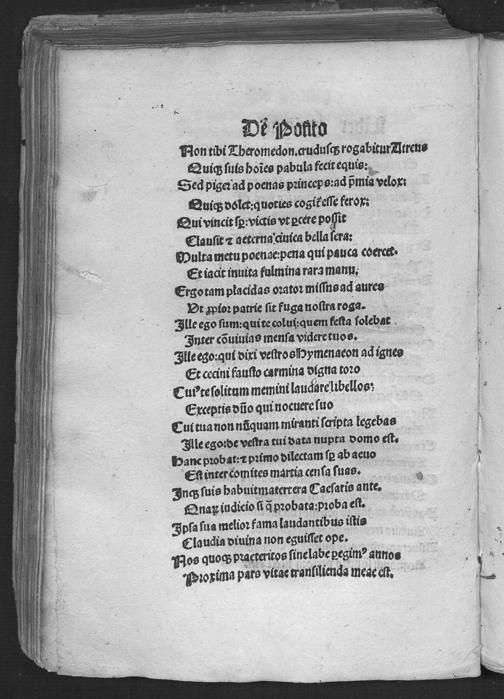 De Ponto
Non tibi Theromedon, crudusq; rogabitur Atreus
Quiq; suis hoı̄es pabula fecit equis:
Sed piger ad poenas princeps: ad p̄mia velox:
Quiq; dolet: quoties cogit᷑ esse ferox:
Qui vincit sp̱: victis vt ꝑcere possit
Clausit ⁊ aeterna ciuica bella sera:
Multa metu poenae: pena qui pauca coercet.
Et iacit inuita fulmina rara manu,
Ergo tam placidas orator missus ad aures
Ut ꝓpior patrie sit fuga nostra roga.
Ille ego sum: qui te colui: quem festa solebat
Inter cōuiuias mensa videre tuos.
Ille ego: qui dixi vestros Hymenaeon ad ignes
Et cecini fausto carmina digna toro
Cui᷒ te solitum memini laudare libellos:
Exceptis dn̄o qui nocuere suo
Cui tua non nūquam miranti scripta legebas
Ille ego: de vestra tui data nupta domo est.
Hanc probat: ⁊ primo dilectam sp̱ ab aeuo
Est inter comites martia censa suas.
Inq; suis habuit matertera Caesaris ante.
Quaꝝ iudicio si q̄ probata: proba est.
Ipsa sua melior fama laudantibus istis
Claudia diuina non eguisset ope.
Nos quoq; praeteritos sine labe ꝑegim᷒ annos
Proxima pars vitae transilienda meae est.